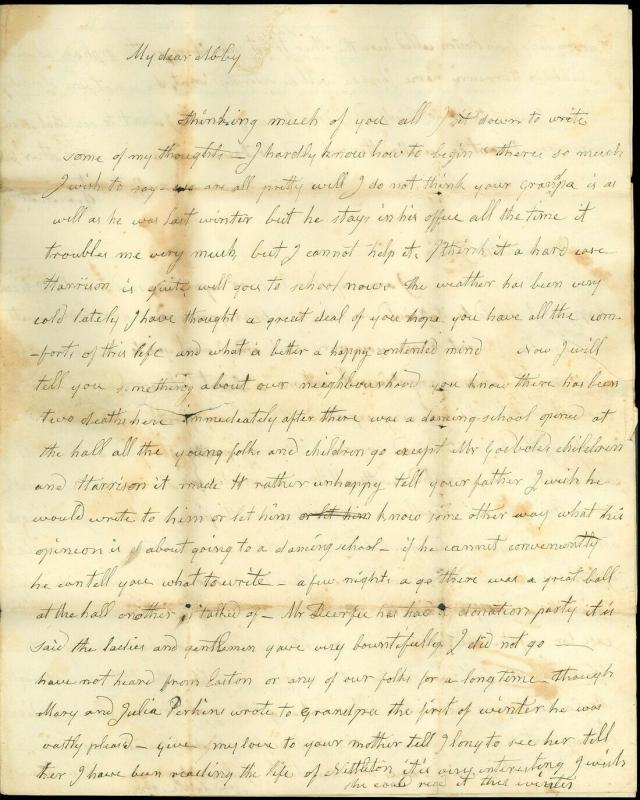 My dear Abby
Thinking much of you all I sit down to write
some of my thoughts — I hardly know how to begin there is so much
I wish to say — we are all pretty well I do not think your Grandpa is as
well as he was last winter but he stays in his office all the time it
troubles me very much but I cannot help it. I think it a hard case
Harrison is quite well goes to school now the weather has been very
cold lately I have thought a great deal of you hope you have all the com-
-forts of this life and what is better a happy contented mind Now I will
tell you something about our neighbourhood you know there has been
two deaths here immediately after there was a dancing school opened at
the hall all the young folks and children go except Mr children
and Harrison it made H rather unhappy tell your father I wish he
would write to him or let him or let him know some other way what his
opineon is about going to a dancing school — if he cannot conveniently
he can tell you what to write — a few nights a go there was a great ball
at the hall another is talked of — Mr has had a donation party it is
said the ladies and gentlemen gave very bountifully I did not go —
have not heard from Easton or any of our folks for a long time — though
Mary and Julia Perkins wrote to Grandpa the first of winter he was
vastly pleasd — give my love to your mother tell I long to see her tell
her I have been reading the life of Nettleton it is very interesting I wish
she could read it this winter